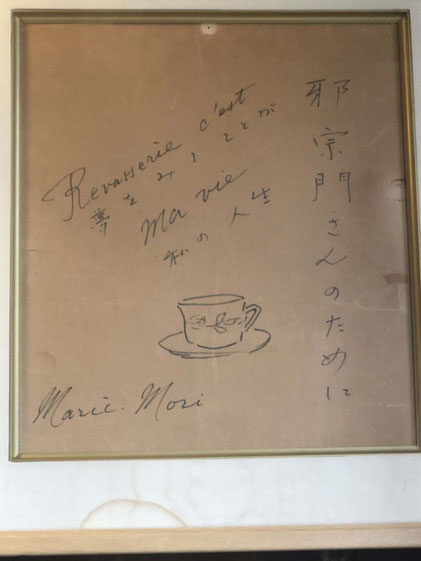 邪宗門さんのために
Revasserie c'est
夢をみることが
Ma vie
私の人生
Marie. Mori